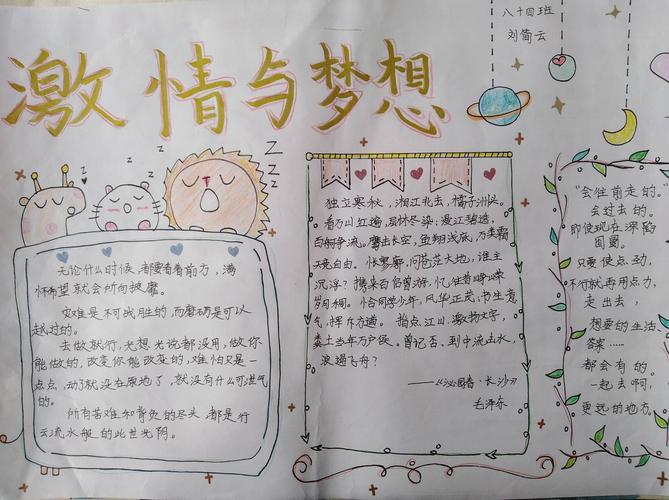 激情与梦想
八十四班
刘简云
z
z
z
z
z
无论什么时候,都要看着前方,满
怀希望就会所向披靡。
灾难是不可战胜的,而磨砺是可以
越过的。
去做就行,光想光说都没用,做你
能做的,改变你能改变的,难怕只是一
点点,动了就没在原地了,就没有什么可泄气
的。
所有苦难和背负的尽头,都是行
云流水般的此世光阴。
独立寒秋,湘江北去,橘子洲头。
看万山红遍,层林尽染;漫江碧透,
百舸争流。鹰击长空,鱼翔浅底,万类霜
天竞自由。怅寥廓,问苍茫大地,谁主
沉浮?携来百侣曾游,忆往昔峥嵘
岁月稠。恰同学少年,风华正茂;书生意
气,挥斥方遒。指点江山,激扬文字,
粪土当年万户侯。曾记否,到中流击水,
浪遏飞舟?
——《沁园春·长沙》
毛泽东
"会往前走的。
会过去的。
即使现在深陷
囹圄。
只要使点劲,
不行就再用点力,
走出去,
想要的生活
答案……
都会有的。
一起去啊,
更远的地方